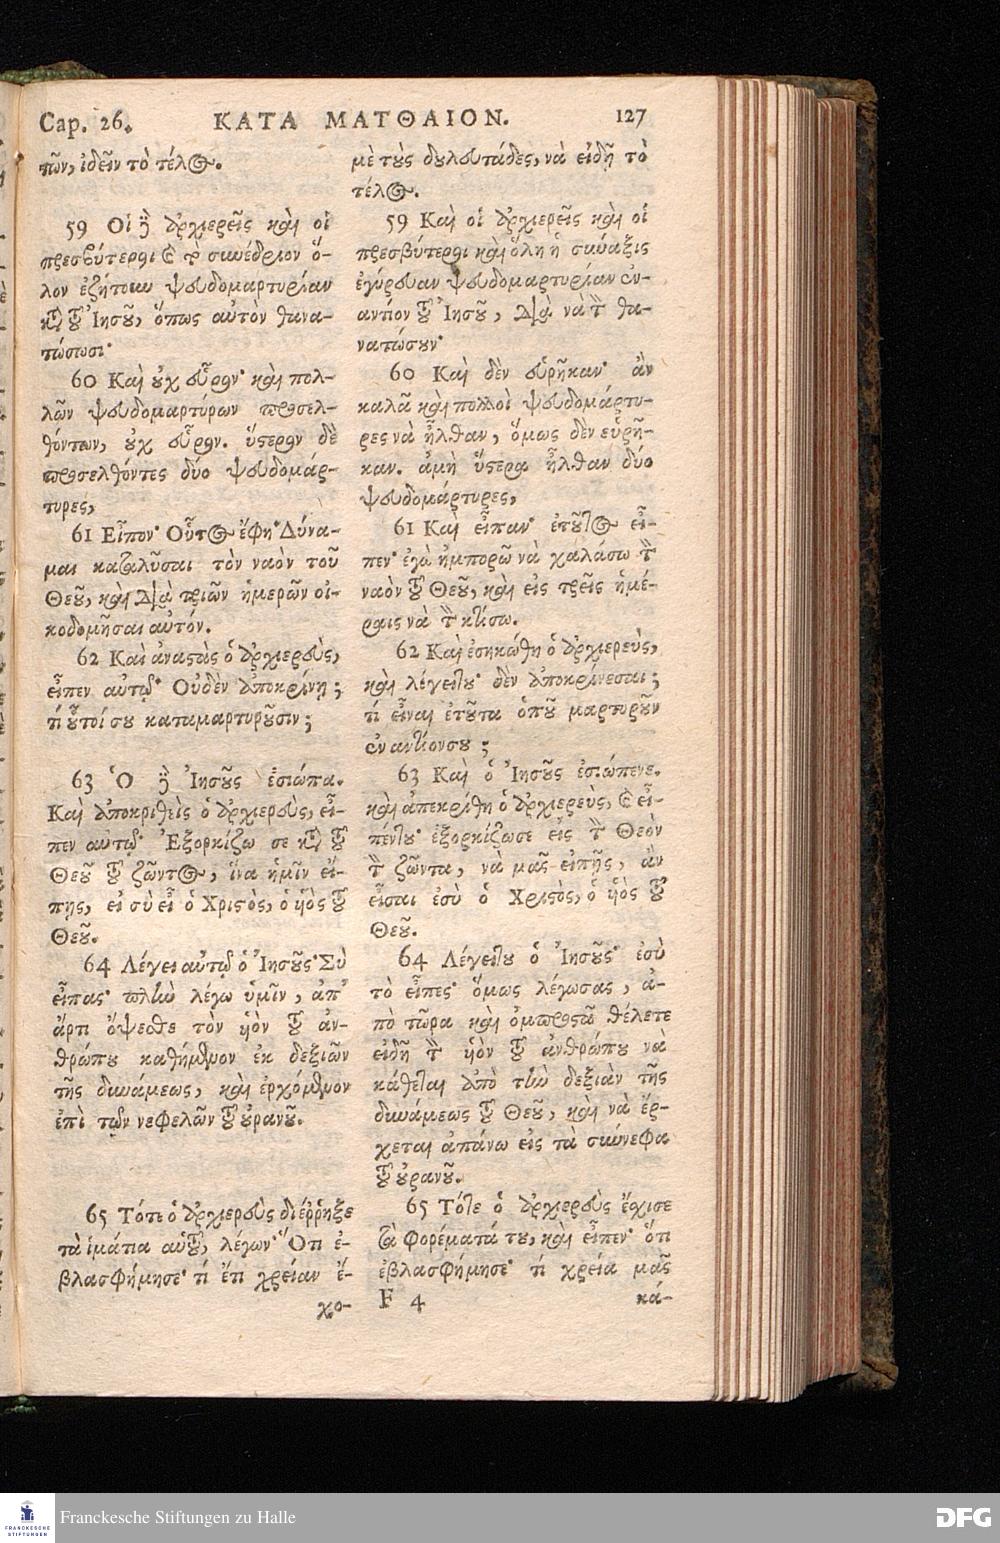 Cap. 26. ΚΑΤΑ ΜΑΤΘΑΙΟΝ. 127
τῶν, ἰδεῖν τὸ τέλος.
59 Οἱ δὲ ἀρχιερεῖς καὶ οἱ
πρεσβύτεροι καὶ τὸ συνέδριον ὅ-
λον ἐζήτουν ψευδομαρτυρίαν
κατὰ τοῦ Ἰησοῦ, ὅπως αὐτὸν θανα-
τώσωσι·
60 Καὶ οὐχ εὗρον· καὶ πολ-
λῶν ψευδομαρτύρων προσελ-
θόντων, οὐχ εὗρον. ὕστερον δὲ
προσελθόντες δύο ψευδομάρ-
τυρες,
61 Εἶπον· Οὗτος ἔφη· Δύνα-
μαι καταλῦσαι τὸν ναὸν τοῦ
Θεοῦ, καὶ διὰ τριῶν ἡμερῶν οἰ-
κοδομῆσαι αὐτόν.
62 Καὶ ἀναστὰς ὁ ἀρχιερεὺς,
εἶπεν αὐτῷ· Οὐδὲν ἀποκρίνῃ;
τί οὗτοί σου καταμαρτυροῦσιν;
63 Ὁ δὲ Ἰησοῦς ἐσιώπα.
Καὶ ἀποκριθεὶς ὁ ἀρχιερεὺς, εἶ-
πεν αὐτῷ· Ἐξορκίζω σε κατὰ τοῦ
Θεοῦ τοῦ ζῶντος, ἵνα ἡμῖν εἴ-
πῃς, εἰ σὺ εἶ ὁ Χριστὸς, ὁ υἱὸς τοῦ
Θεοῦ.
64 Λέγει αὐτῷ ὁ Ἰησοῦς· Σὺ
εἶπας· πλὴν λέγω ὑμῖν, ἀπ'
ἄρτι ὄψεσθε τὸν υἱὸν τοῦ ἀν-
θρώπου καθήμενον ἐκ δεξιῶν
τῆς δυνάμεως, καὶ ἐρχόμενον
ἐπὶ τῶν νεφελῶν τοῦ οὐρανοῦ.
65 Τότε ὁ ἀρχιερεὺς διέῤῥηξε
τὰ ἱμάτια αὐτοῦ, λέγων· Ὅτι ἐ-
βλασφήμησε· τί ἔτι χρείαν ἔ-
χο-
μὲ τοὺς δουλευτάδες, νὰ εἰδῇ τὸ
τέλος.
59 Καὶ οἱ ἀρχιερεῖς καὶ οἱ
πρεσβύτεροι καὶ ὅλη ἡ σύναξις
ἐγύρευαν ψευδομαρτυρίαν ἐν-
αντίον τοῦ Ἰησοῦ, διὰ νὰ τὸν θα-
νατώσουν·
60 Καὶ δὲν εὑρῆκαν· ἂν
καλᾶ καὶ πολλοὶ ψευδομάρτυ-
ρες νὰ ἦλθαν, ὅμως δὲν εὑρῆ-
καν. ἀμὴ ὕστερα ἦλθαν δύο
ψευδομάρτυρες,
61 Καὶ εἶπαν· ἐτοῦτος εἶ-
πεν· ἐγὼ ἠμπορῶ νὰ χαλάσω τὸν
ναὸν τοῦ Θεοῦ, καὶ εἰς τρεῖς ἡμέ-
ραις νὰ τὸν κτίσω.
62 Καὶ ἐσηκώθη ὁ ἀρχιερεὺς,
καὶ λέγειτου· δὲν ἀποκρίνεσαι;
τί εἶναι ἐτοῦτα ὁποῦ μαρτυροῦν
ἐναντίονσου;
63 Καὶ ὁ Ἰησοῦς ἐσιώπενε.
καὶ ἀπεκρίθη ὁ ἀρχιερεὺς, καὶ εἶ-
πέντου· ἐξορκίζωσε εἰς τὸν Θεὸν
τὸν ζῶντα, νὰ μᾶς εἰπῇς, ἂν
εἶσαι ἐσὺ ὁ Χριστὸς, ὁ υἱὸς τοῦ
Θεοῦ.
64 Λέγειτου ὁ Ἰησοῦς· ἐσὺ
τὸ εἶπες· ὅμως λέγωσας, ἀ-
πὸ τῶρα καὶ ὀμπροστὰ θέλετε
εἰδῆ τὸν υἱὸν τοῦ ἀνθρώπου νὰ
κάθεται ἀπὸ τὴν δεξιὰν τῆς
δυνάμεως τοῦ Θεοῦ, καὶ νὰ ἔρ-
χεται ἀπάνω εἰς τὰ σύνεφα
τοῦ οὐρανοῦ.
65 Τότε ὁ ἀρχιερεὺς ἔσχισε
τὰ φορέματά του, καὶ εἶπεν· ὅτι
ἐβλασφήμησε· τί χρεία μᾶς
F 4 κά-
FRANCKESCHE
STIFTUNGEN
Franckesche Stiftungen zu Halle
DFG